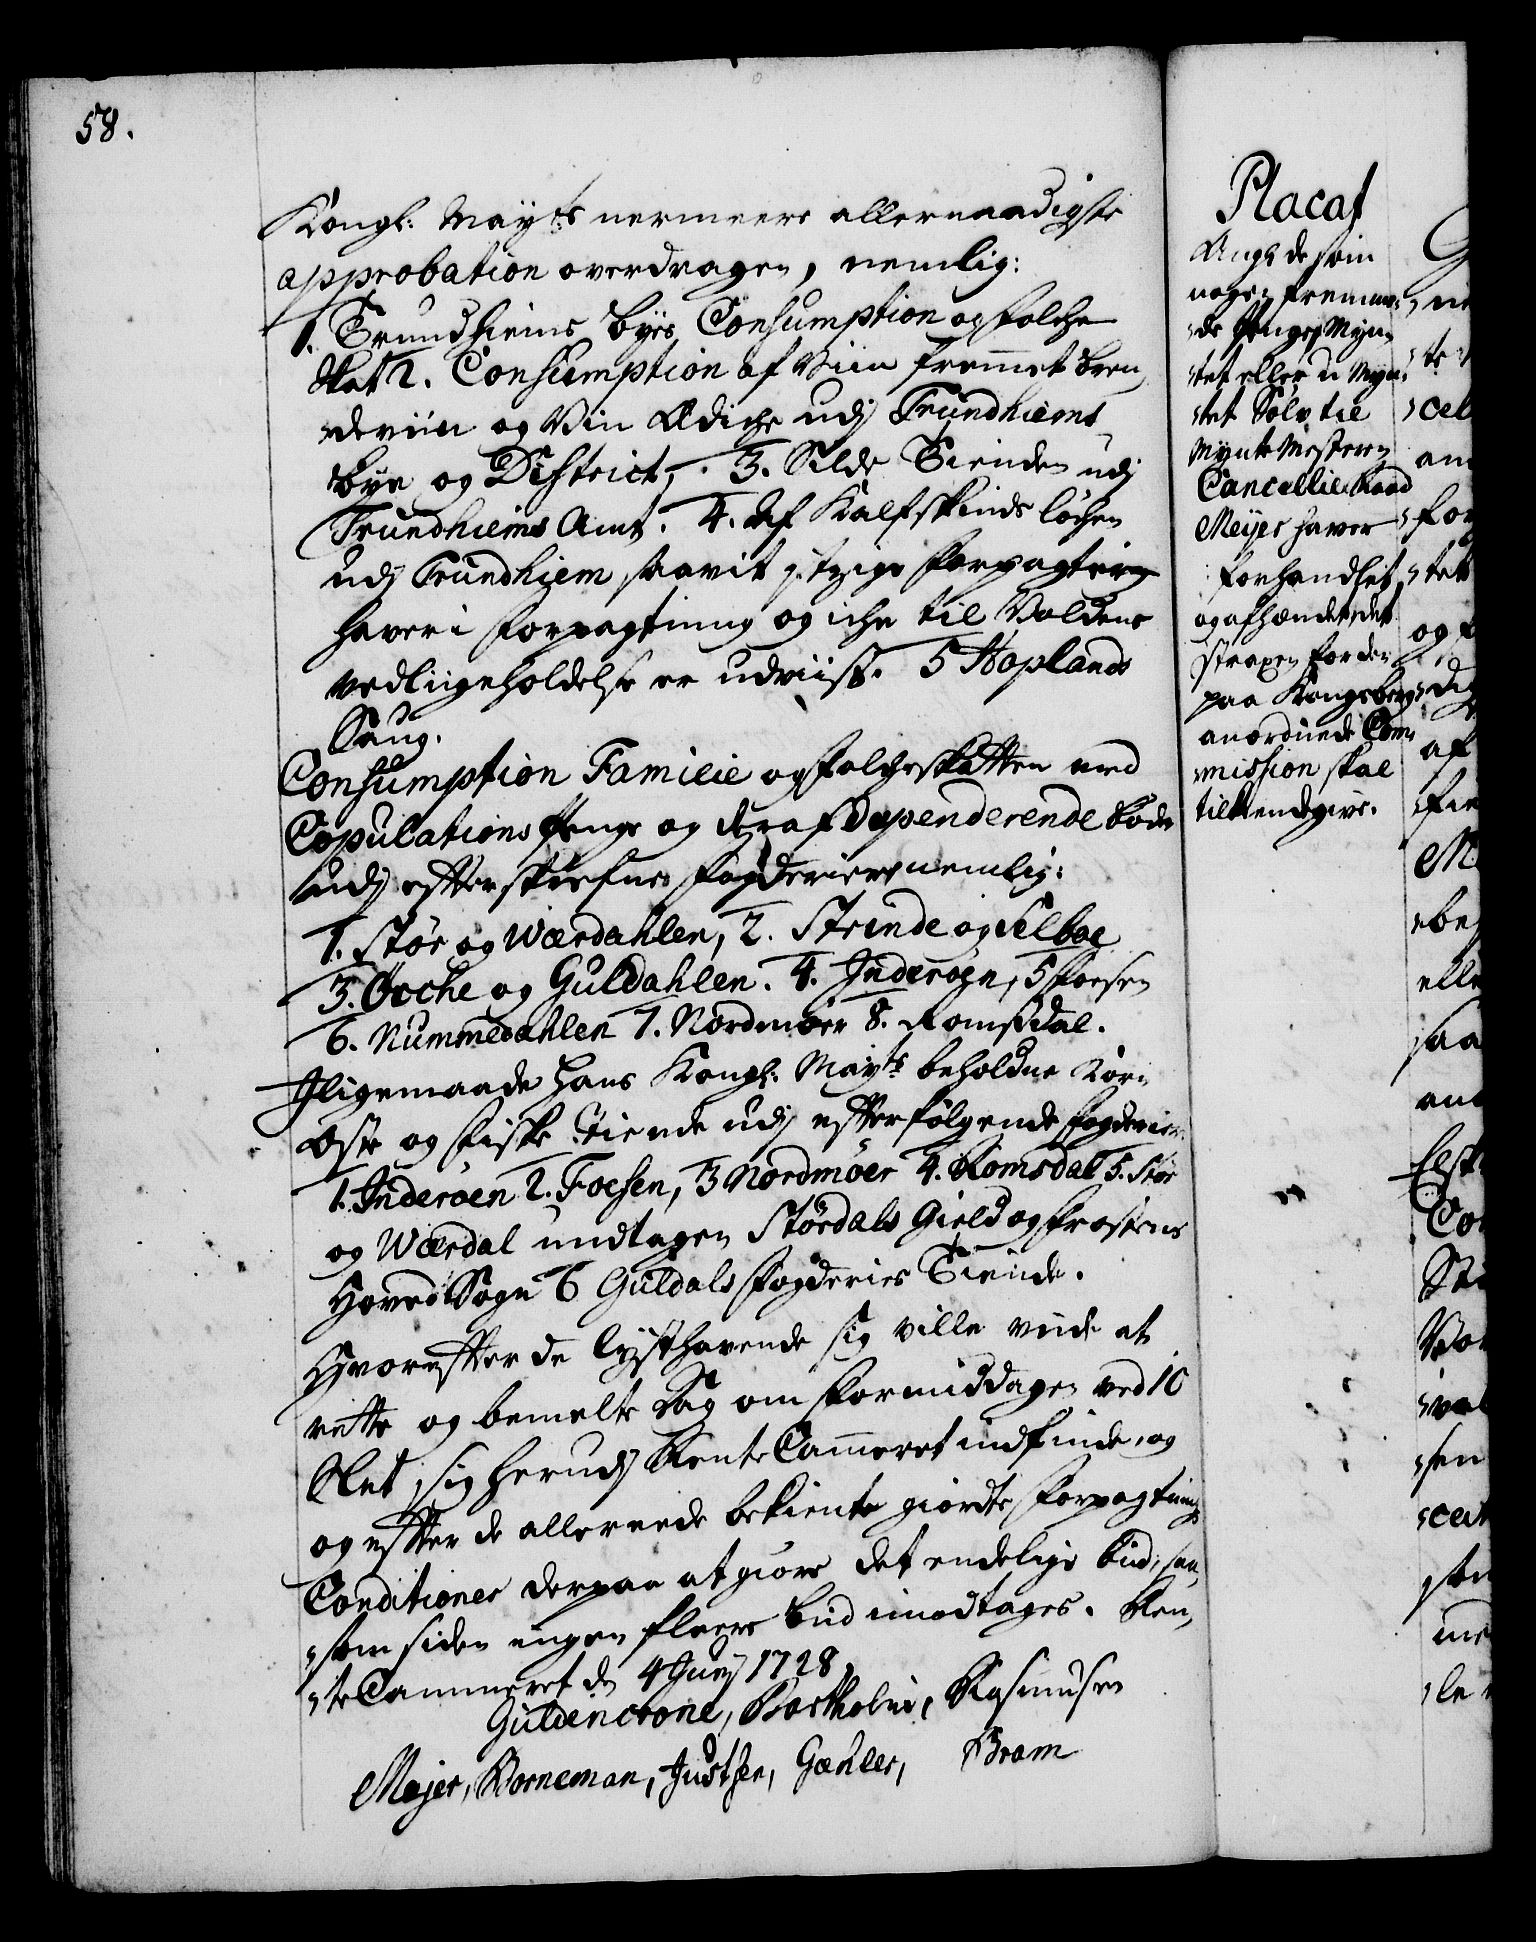 58.
Kongl: May:ts nermeere allernaadigste
approbation overdragen, nemlig:
1. Trundhiems Byes Consumption og folche
skat 2. Consumption af Viin fremmet bren¬
deviin og Viin Ædiche udj Trundhiems
Bye og District, 3. Silde Tienden udj
Trundhiems Amt. 4. Af Kalfskinds løchen
udj Trundhiem saavit j. tzige forpagtere
haver i forpagtning og iche til Voldens
vedligeholdelse er udviist. 5 Hoplands
Saug.
Consumption Familie og folcheskatten med
Copulations Penge og deraf dependerende bøder
udj effterskrefne fogderier nemlig:
1. Stør og Wærdahlen, 2. Strinde og Selboe
3. Orche og Guldahlen. 4. Inderøen, 5 Foesen
6. Nummedahlen 7. Nordmøer 8. Romsdal.
Iligemaade Hans Kongl: May:ts beholdne Korn
Oste og fiske Tiende udj effterfølgende fogderier
1. Inderøen 2. Foesen, 3 Nordmøer 4. Romsdal 5. Stør
og Wærdal undtagen Størdals Gield og Frostens
Hoved Sogn 6 Guldals fogderies Tiende.
Hvoreffter de lysthavende sig ville vide at
rette og bemelte Dag om formiddagen ved 10
Slet sig herudj Rente Cammeret indfinde, og
og effter de allerede bekiente giordte forpagtnings
Conditioner derpaa at giøre det endelige bud, saa¬
som siden ingen fleere bud imodtages. Ren¬
te Cammeret d 4 Junj 1728
Guldencrone, Bartholin, Rasmusen
Mejer, Borneman, Justsen, Gæhler, Bram
Placat
Ang: de som
nogen fremme¬
de Penge Myn¬
tet eller u Myn¬
tet Sølv til
Mynte Mesteren
Cancellie Raad
Meyer haver
forhandlet
og afhændet, det
strapen for den
paa Kongsberg
anordnede Com¬
mission skal
tilkiendegive.